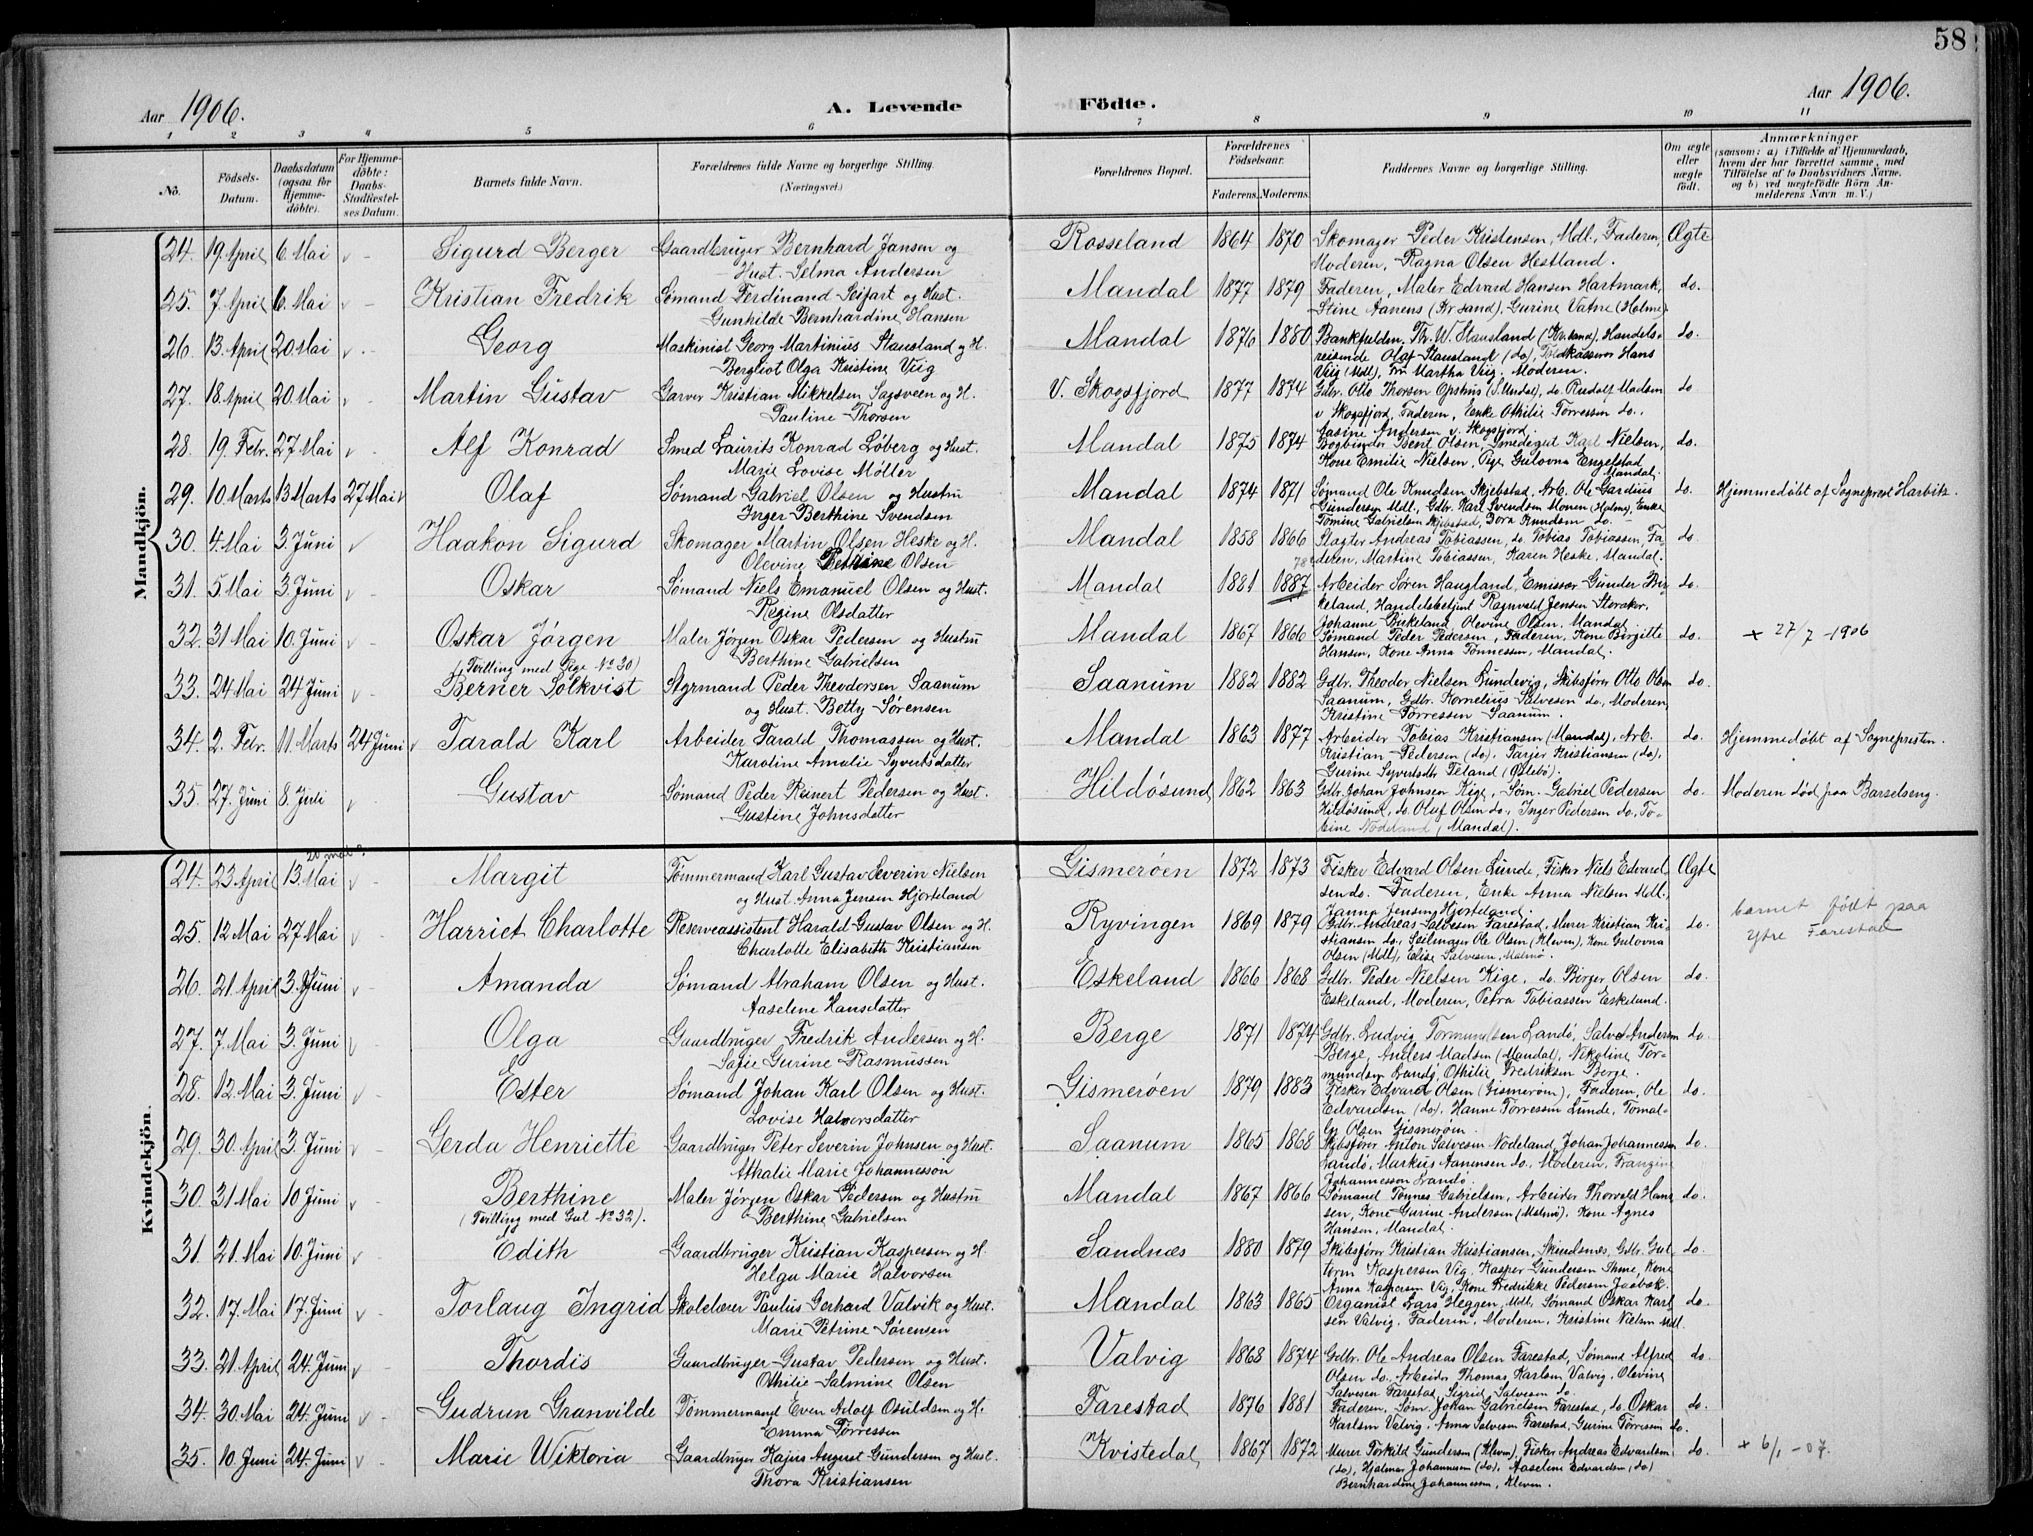 58
Aar 1906.
A. Levende Födte.
Aar 1906.
1 2 3 4 5 6 7 8 9 10 11
No.
Födsels-Datum.
Daabsdatum (ogsaa for Hjemme-döbte).
For Hjemme-döbte: Daabs-Stadfæstel-ses Datum.
Barnets fulde Navn.
Forældrenes fulde Navne og borgerlige Stilling. (Næringsvei.)
Forældrenes Bopæl.
Forældrenes Födselsaar.
Faderens. Moderens.
Faddernes Navne og borgerlige Stilling.
Om ægte eller uægte födt.
Anmærkninger
(saasom: a) i Tilfælde af Hjemmedaab, hvem der har forrettet samme, med Tilföielse af to Daabsvidners Navne, og b) ved uægtefödte Börn Anmelderens Navn m. V.)
Mandkjön.
24. 19 April 6 Mai Sigurd Berger Gaardbruger Bernhard Jansen og Rosseland 1864 1870 Skomager Peder Kristensen, Mdl., Faderen, Ægte
Hust. Selma Andersen Moderen, Ragna Olsen Hestland.
25. 7 April 6. Mai Kristian Fredrik Sømand Ferdinand Seifart og Hust. Mandal 1877 1879 Faderen, Maler Edvard Hansen Hartmark, do.
Gunhilde Bernhardine Hansen Stine Aanens (Kr.sand), Gurine Vatne (Holme).
26. 13. April 20 Mai Georg Maskinist Georg Martinius Stausland og H. Mandal 1876 1880 Bankfuldm. Th. W. Stausland (Kr.sand), Handels- do.
Bergliot Olga Kristine Viig reisende Olaf Stausland (do), Toldkasserer Hans
Viig (Mdl), Fru Martha Viig. Moderen.
27. 18. April 20. Mai Martin Gustav Garver Kristian Mikkelsen Sagsveen og H. V. Skogsfjord 1877 1874 Gdbr. Otto Thorsen Opshus (S. Undal), do. Rudolf Madsen do
Pauline Thorsen v Skogsfjord, Faderen, Enke Othilie Torressen do.,
Aasine Andersen v. Skogsfjord.
28 19 Febr. 27 Mai Alf Konrad Smed Laurits Konrad Løberg og Hust. Mandal 1875 1874 Bogbinder Bent Olsen, Smedegut Karl Nielsen, do.
Marie Lovise Møller Kone Emilie Nielsen, Pige Gulovna Engelstad
Mandal.
29. 10 Marts 13 Marts 27 Mai Olaf Sømand Gabriel Olsen og Hustru Mandal 1874 1871 Sømand Ole Knudsen Skjebstad, Arb. Ole Gardius do. Hjemmedøbt af Sogneprest Harbitz.
Inger Berthine Svendsen Gundersen Mdl., Gdbr. Karl Svendsen Monen (Holme), Enke
Tomine Gabrielsen Skjebstad, Bora Knudsen do.
30. 4. Mai 3. Juni Haakon Sigurd Skomager Martin Olsen Heske og H. Mandal 1858 1866 Slagter Andreas Tobiassen, do Tobias Tobiassen, Fa- do.
Olevine Petrine Olsen deren, Martine Tobiassen, Karen Heske, Mandal.
31. 5. Mai 3 Juni Oskar Sømand Niels Emanuel Olsen og Hust. Mandal 1881 1887 78 Arbeider Søren Haugland, Emissær Gunder Bir- do.
Regine Olsdatter keland, Handelsbetjent Ragnvald Jensen Storaker,
Johanne Birkeland, Olevine Olsen. Mandal
32. 31 Mai 10. Juni Oskar Jørgen Maler Jørgen Oskar Pedersen og Hustru Mandal 1867 1866 Sømand Peder Pedersen, Faderen, Kone Birgitte do. + 27/7 - 1906
(Tvilling med Pige No 30) Berthine Gabrielsen Hansen, Kone Anna Tønnessen, Mandal.
33. 24 Mai 24 Juni Berner Solkvist Styrmand Peder Theodorsen Saanum Saanum 1882 1882 Gdbr. Theodor Nielsen Lundevig, Skibsfører Otto Olsen do.
og Hust. Betty Sørensen Saanum, Gdbr. Kornelius Salvesen do, Moderen,
Kristine Torressen Saanum.
34. 2. Febr. 11. Marts 24 Juni Tarald Karl Arbeider Tarald Thomassen og Hust. Mandal 1863 1877 Arbeider Tobias Kristiansen (Mandal), Arb. do. Hjemmedøbt af Sognepresten.
Karoline Amalie Syvertsdatter Kristian Pedersen (do), Tarjer Kristiansen (do),
Gurine Syvertsdtr Teland (Øslebø).
35. 27. Juni 8. Juli Gustav Sømand Peder Reinert Pedersen og Hust. Hildøsund 1862 1863 Gdbr. Johan Johnsen Kige, Søm. Gabriel Pedersen do. Moderen død paa Barselseng.
Gustine Johnsdatter Hildøsund, do. Olaf Olsen do., Inger Pedersen do, To-
bine Nodeland (Mandal).
Kvindekjön.
20 mai?
24. 23 April 13. Mai Margit Tømmermand Karl Gustav Severin Nielsen Gismerøen 1872 1873 Fisker Edvard Olsen Lunde, Fisker Niels Edvard- Ægte
og Hust. Anna Jensen Hjorteland sen do. Faderen, Enke Anna Nielsen Mdl.
Janna Jensen Hjorteland.
25. 12 Mai 27 Mai Harriet Charlotte Reserveassistent Harald Gustav Olsen og H. Ryvingen 1869 1879 Gdbr. Andreas Salvesen Farestad, Murer Kristian Kri- do. barnet født paa
Charlotte Elisabeth Kristiansen stiansen do, Seilmager Ole Olsen (Kleven), Kone Gulovna Ytre Farestad
Olsen (Mdl), Elise Salvesen, Malmø.
26. 21 April 3. Juni Amanda Sømand Abraham Olsen og Hust. Eskeland 1866 1868 Gdbr. Peder Nielsen Kige, do. Birger Olsen do.
Aaselene Hansdatter Eskeland, Moderen, Petra Tobiassen Eskeland.
27. 7 Mai 3. Juni Olga Gaardbruger Fredrik Andersen og H. Berge 1871 1874 Gdbr. Ludvig Tormundsen Landø, Salve Andersen do.
Sofie Gurine Rasmussen Berge, Anders Madsen (Mandal), Nikoline Tor-
mundsen Landø, Othilie Fredriksen Berge.
28. 12. Mai 3. Juni Ester Sømand Johan Karl Olsen og Hust. Gismerøen 1879 1883 Fisker Edvard Olsen (Gismerøen), Faderen, Ole do.
Lovise Halvorsdatter Edvardsen (do), Hanne Torressen Lunde, Tomal-
Olsen Gismerøen.
29. 30. April 3. Juni Gerda Henriette Gaardbruger Peter Severin Johnsen og Hust. Saanum 1865 1868 Skibsfører Anton Salvesen Nodeland, Johan Johannessen do.
Athalie Marie Johannesson Landø, Markus Aanensen do, Moderen, Frangine
Johannessen Landø.
30. 31 Mai 10 Juni Berthine Maler Jørgen Oskar Pedersen og Hustru Mandal 1867 1866 Sømand Tønnes Gabrielsen, Arbeider Thorvald Han- do.
(Tvilling med Gut No 32). Berthine Gabrielsen sen, Kone Gurine Andersen (Malmø), Kone Agnes
Hansen, Mandal.
31. 21. Mai 10. Juni Edith Gaardbruger Kristian Kaspersen og H. Sandnæs 1880 1879 Skibsfører Kristian Kristiansen, Skindsnes, Gdbr. Gut- do.
Helga Marie Halvorsen torm Kaspersen Vig, Kasper Gundersen Ihme, Kone
Anna Kaspersen Vig, Kone Fredrikke Pedersen Jaabæk.
32. 17 Mai 17. Juni Torlaug Ingrid Skolelærer Paulus Gerhard Valvik og Hust. Mandal 1863 1865 Organist Lars Heggen, Mdl., Sømand Oskar Karl- do.
Marie Petrine Sørensen sen Valvig, Faderen, Moderen, Kristine Nielsen Mdl.
33. 21. April 24. Juni Thordis Gaardbruger Gustav Pedersen og Hust. Valvig 1868 1874 Gdbr. Ole Andreas Olsen Farestad, Sømand Alfred do.
Othilie Salmine Olsen Olsen do. Arbeider Thomas Karlsen Valvig, Olevine
Salvesen Farestad, Sigrid Salvesen do.
34. 30. Mai 24. Juni Gudrun Granvilde Tømmermand Even Adolf Osuldsen og H. Farestad 1876 1881 Faderen, Søm. Johan Gabrielsen Farestad, do. Oskar do.
Emma Torressen Karlsen Valvig, Anna Salvesen Farestad, Gurine Torressen do.
35. 10. Juni 24. Juni Marie Wiktoria Gaardbruger Kajus August Gundersen og Hust. Kvistedal 1867 1872 Murer Torkild Gundersen (Kleven), Fisker Andreas Edvardsen do. + 6/1 - 07.
Thora Kristiansen (do), Hjalmar Johannessen (do), Aaselene Edvardsen (do)
Bernhardine Johannessen, Kleven.